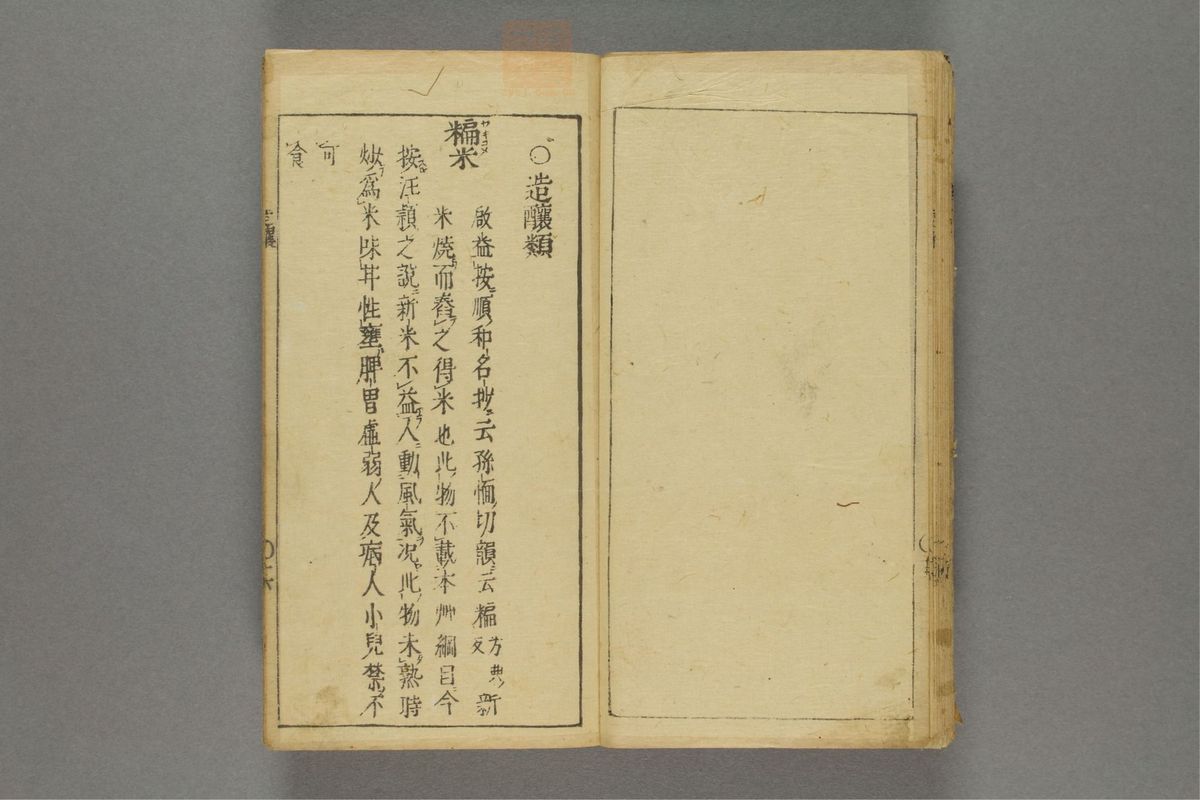 ○造釀類
糄米 ヤキコメ
啟益按順和名抄云孫愐切韻云糄 方典反 新
米燒而舂之得米也此物不載本艸綱目今
按汪頴之說新米不益人動風氣况此物未熟時
炒為米味甘性壅脾胃虛弱人及病人小兒禁不
可
食